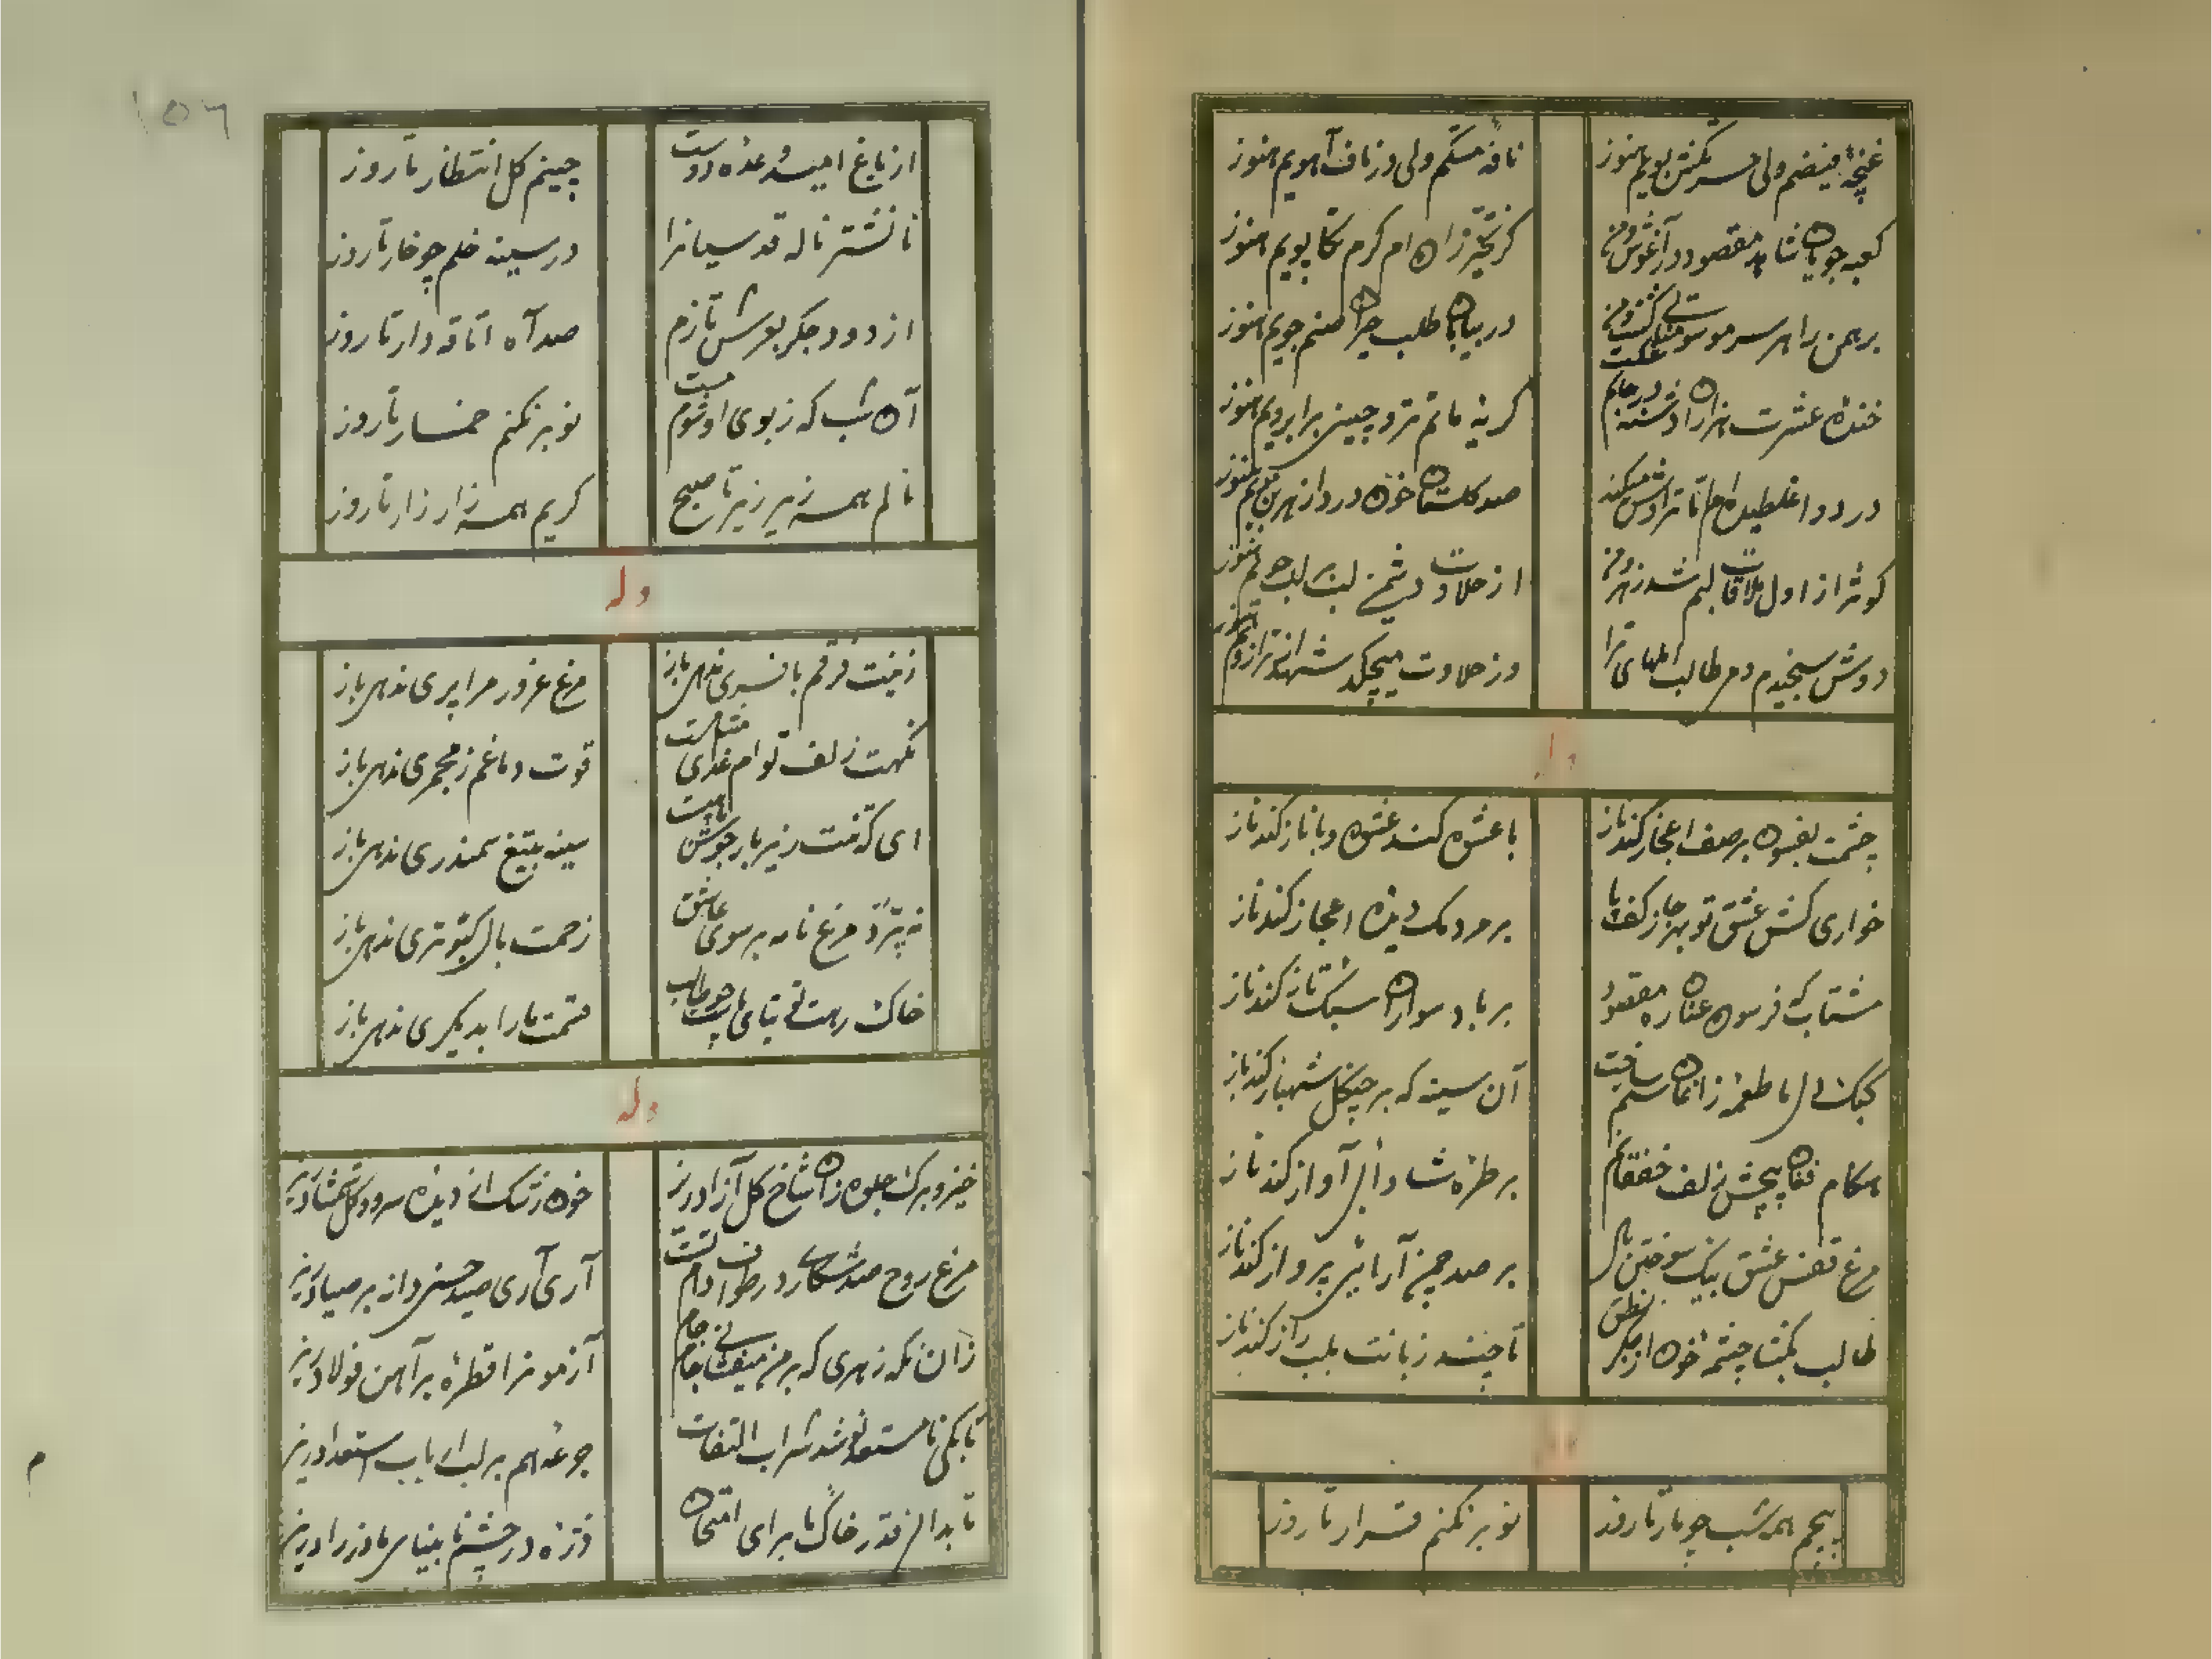 غنچه فیضم ولی سر بویم هنوز
نافه مشکم ولی در ناف آهویم هنوز
کعبه جویان شاهد مقصود در آغوش من
گرچه زان ام گرم تکاپویم هنوز
برهمن را هر سر مو
در بیابان طلب صنم جویم هنوز
خنده عشرت هزاران
گریه ماتم ترو چین بر ابرویم هنوز
در دو غلطیده ام تا تراوش میکند
صد گلستان خون درد از هر بن مویم هنوز
کوثر از اول ملاقات لبم شد زهر و من
از حلاوت لب بر لب جویم هنوز
دوش سنجیدم دمی طالب ترا
وز حلاوت میچکد شهد از ترازویم هنوز
وله
چشمت بفسون بر صف اعجاز کند ناز
با عشوه کند عشوه و با ناز کند ناز
خواری کش عشق تو کف پا
بر مردمک دیده اعجاز کند ناز
مشتاب که فرسوده عنان ره مقصود
بر باد سواران سبک تاز کند ناز
کبک دل ما طعمه زان سینه ساخت
آن سینه که بر چنگل شهباز کند ناز
هنگام فغان پیچش زلف خفقانم
بر طره شاد آواز کند ناز
مرغ قفس عشق بیک سوختن بال
بر صد چمن آرایش پرواز کند ناز
طالب بگشا چشمه خون از جگر نطق
تا چند زبانت بلب راز کند ناز
پیچم همه شب چو مار تا روز
نوبر نکنم قرار تا روز
۱۵۶
از باغ امید وعده دوست
چینم گل انتظار تا روز
تا نشتر ناله قدسیانرا
در سینه خلم چو خار تا روز
از دود جگر بعرش تازم
صد آه اتاقه دار تا روز
آن شب که ز بوی او شوم مست
نوبر نکنم خمار تا روز
نالم همه زیر زیر تا صبح
گریم همه زار زار تا روز
وله
زینت فرقم بافسری ندهی باز
مرغ غرور مرا پری ندهی باز
نکهت زلف توام غذای مشامست
قوت دماغم ز مجمری ندهی باز
ای که تنت زیر بار جوشن
سینه بتیغ سمندری ندهی باز
نه پرد مرغ نامه بر سوی عاشق
زحمت بال کبوتری ندهی باز
خاک رهت توتیای چو طالب
قسمت ما را بدیگری ندهی باز
وله
خیز و برگ جلوه زان شاخ گل آزاد ریز
خون رشک از دیده سرو و گل شمشاد ریز
مرغ روح صد شکاری در طواف دام تست
آری آری صید حسنی دانه بر صیاد ریز
زان نگه زهری که بر من میفشانی جام جام
آزمونرا قطره بر آهن فولاد ریز
تا بکی نامستعد نوشد شراب التفات
جرعه هم بر لب ارباب استعداد ریز
تا بدانی قدر خاک ما برای امتحان
ذره در چشم نابینای مادرزاد ریز
م